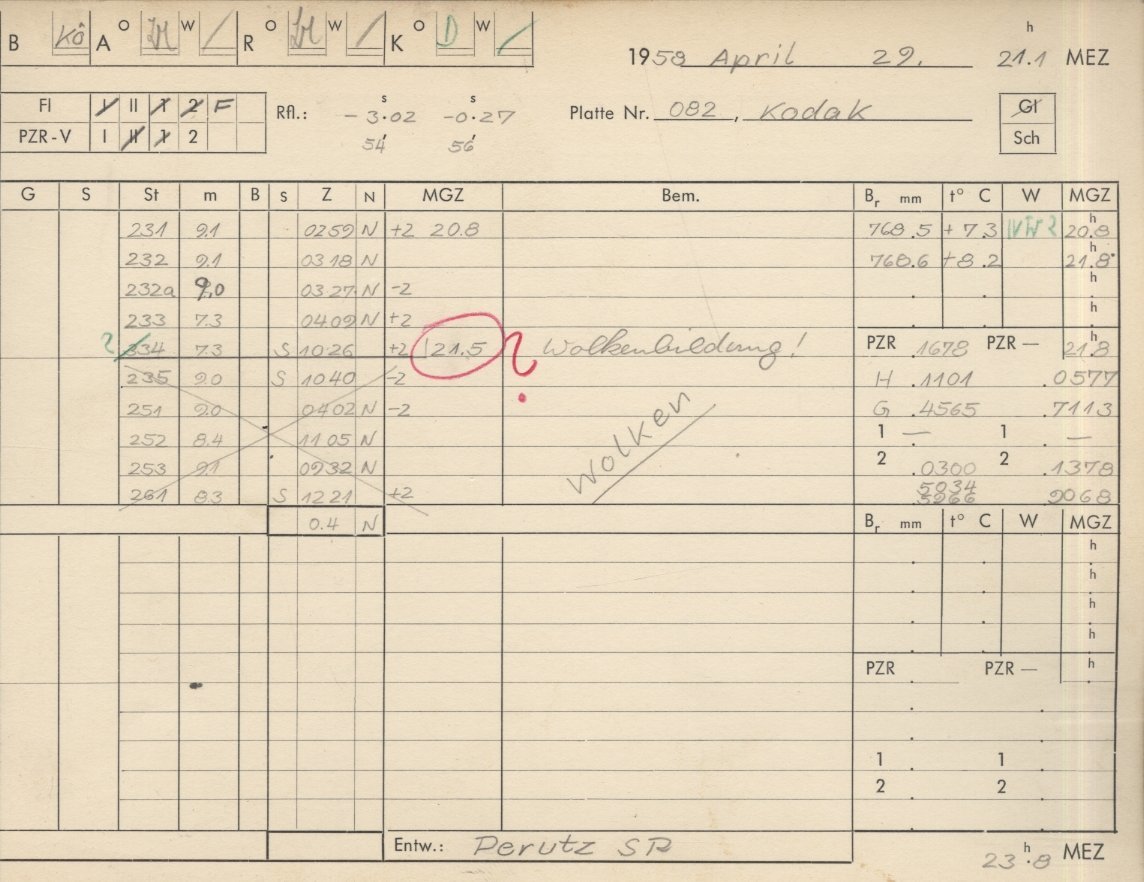 B Kô A O W R O W K O D W
h
1958 April 29. 21.1 MEZ
Fl I II 1 2 F
PZR-V I II 1 2
Rfl.: - 3.02 s -0.27 s
54' 56'
Platte Nr. 082, Kodak
Gl
Sch
G S St m B S Z N MGZ Bem. Br mm t° C W MGZ
231 9.1 02 59 N +2 20.8 768.5 +7.3 20.8 h
232 9.1 03 18 N 768.6 +8.2 21.8 h
232a 9.0 03 27 N -2 h
233 7.3 04 09 N +2 h
? 234 7.3 S 10 26 +2 21.5 ? Wolkenbildung! PZR .1678 PZR — 21.8 h
235 9.0 S 10 40 -2 H .1101 .0577
251 9.0 04 02 N -2 Wolken G .4565 .7113
252 8.4 11 05 N 1 — 1 —
253 9.1 09 32 N 2 .0300 2 .1378
261 8.3 S 12 21 +2 5034 9068
0.4 N Br mm t° C W MGZ
h
h
h
h
PZR PZR — h
1 1
2 2
Entw.: Perutz SR
23.8 h MEZ